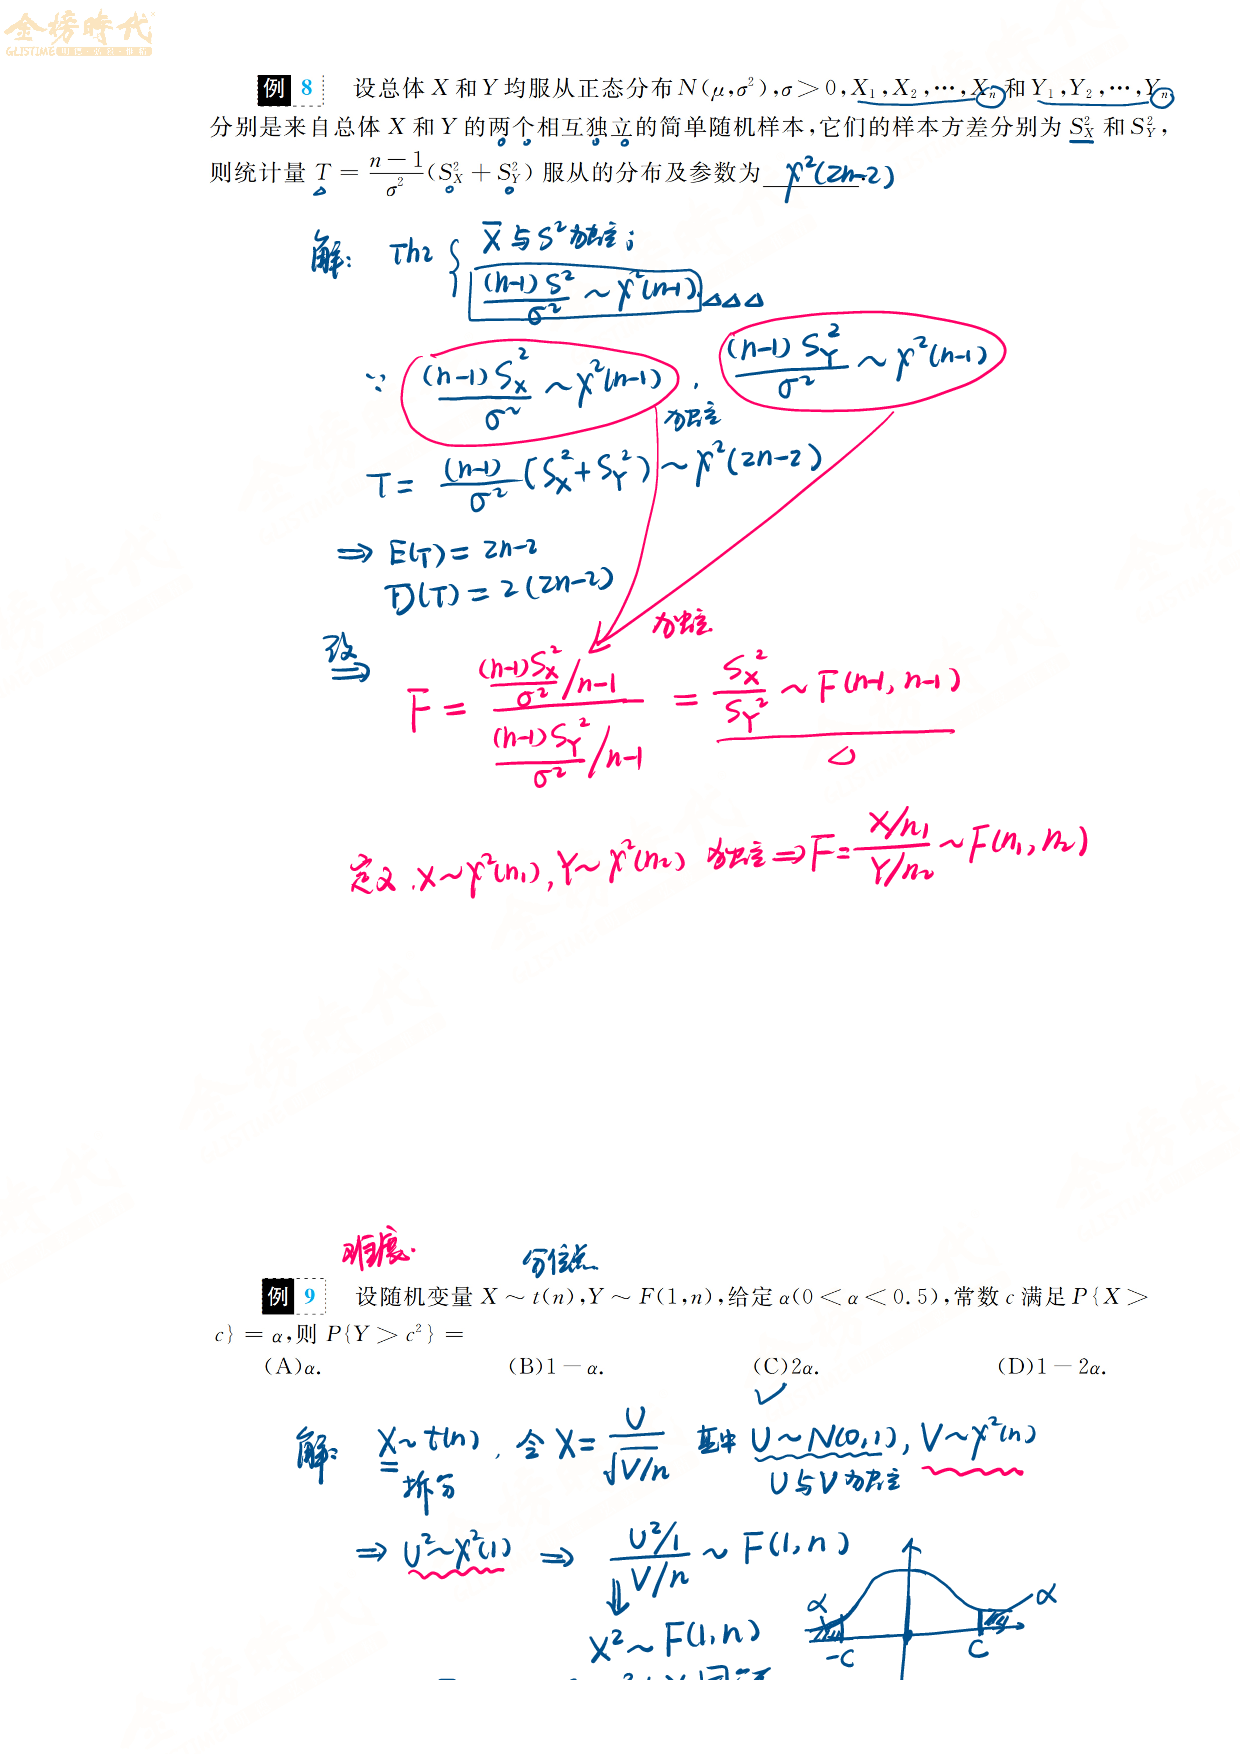 金榜時代
GLISTIME
例 8 设总体 X 和 Y 均服从正态分布 N(μ,σ²),σ＞0,X₁,X₂,…,Xₙ 和 Y₁,Y₂,…,Yₙ
分别是来自总体 X 和 Y 的两个相互独立的简单随机样本,它们的样本方差分别为 S²_X 和 S²_Y,
则统计量 T = (n−1)/σ² (S²_X + S²_Y) 服从的分布及参数为 χ²(2n-2)
解: Th2 { X̄ 与 S² 独立;
(n-1)S²/σ² ~ χ²(n-1) △△△
∵ (n-1)S_X²/σ² ~ χ²(n-1), (n-1)S_Y²/σ² ~ χ²(n-1)
独立
T = (n-1)/σ² (S_X² + S_Y²) ~ χ²(2n-2)
⇒ E(T) = 2n-2
D(T) = 2(2n-2)
改 ⇒
独立
F = ((n-1)S_X²/σ² / n-1) / ((n-1)S_Y²/σ² / n-1) = S_X²/S_Y² ~ F(n-1, n-1)
△
定义. X~χ²(n₁), Y~χ²(n₂) 独立 ⇒ F = (X/n₁)/(Y/n₂) ~ F(n₁, n₂)
难度.
分位点
例 9 设随机变量 X ～ t(n),Y ～ F(1,n),给定 α(0＜α＜0.5),常数 c 满足 P{X＞
c} = α,则 P{Y＞c²} =
(A)α. (B)1−α. (C)2α. (D)1−2α.
✓
解: X~t(n), 令 X = U/√(V/n) 其中 U~N(0,1), V~χ²(n)
拆分 U与V 独立
⇒ U²~χ²(1) ⇒ (U²/1)/(V/n) ~ F(1,n)
⇓
X² ~ F(1,n)
α α
-C C